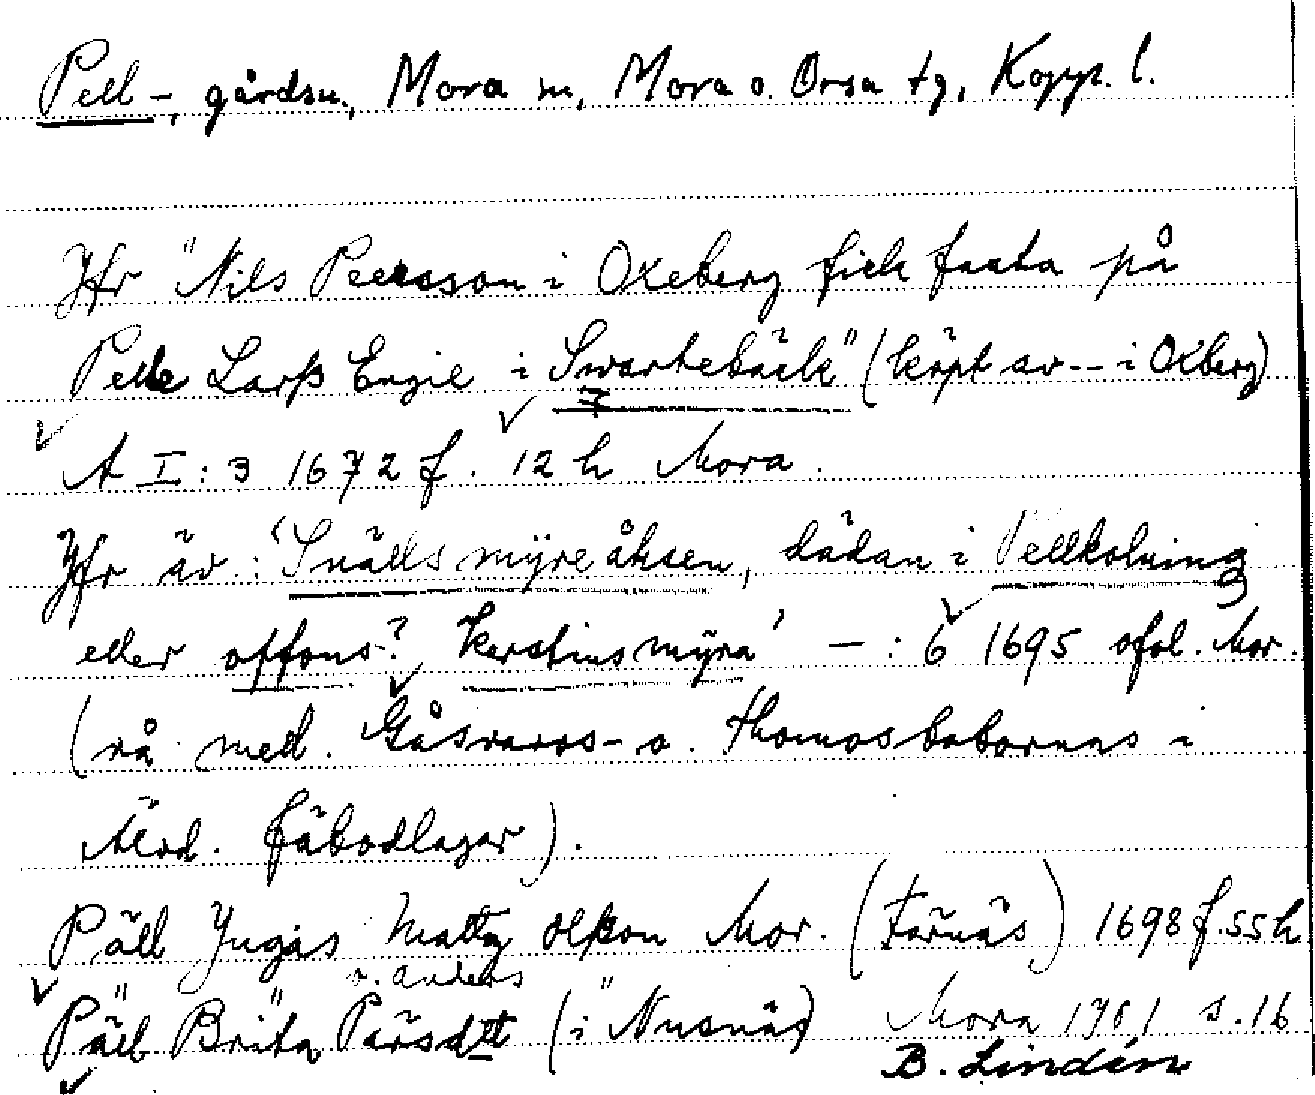 Pell-, gårdsn., Mora sn, Mora o. Orsa tg, Kopp. l.
Jfr "Nils Peersson i Oxeberg fick fasta på
Pelle Larß Engie i Swartebäck" (köpt av -- i Oxberg)
A I:3 1672 f. 12 h Mora.
Jfr äv: 'Snälls mÿre åhsen, dädan i Pellkolning
eller offons? Kerstins mÿra' - : 6 1695 ofol. Mor.
(rå med. Gåsvaros- o. Thomasbobornas i
Älvd. fäbodlagar).
Päll Jugås Matts Olßon Mor. (Färnäs) 1698 f. 55 h
o. anders
Päll Brita Pärsdtt (i Nusnäs) Mora 1701 s. 16
B. Lindén